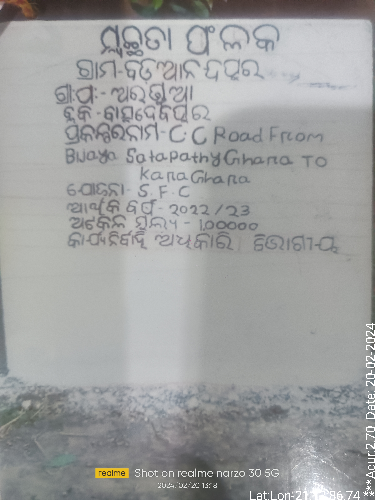 ସ୍ୱଚ୍ଛତା ଫଳକ
ଗ୍ରାମ-ବଡ଼ଆନନ୍ଦପୁର
ଗ୍ରା.ପ:- ଅରଡୁଆ
ବ୍ଲକ - ବାସୁଦେବପୁର
ପ୍ରକଳ୍ପରନାମ- C.C Road From
Bijaya Satapathy Ghara To
Kara Ghara
ଯୋଜନା- S.F.C
ଆର୍ଥିକ ବର୍ଷ - 2022/23
ଅଟକଳ ମୂଲ୍ୟ - 100000
କାର୍ଯ୍ୟନିର୍ବାହୀ ଅଧିକାରୀ ବିଭାଗୀୟ
realme Shot on realme narzo 30 5G
2024/02/20 13:18
Date: 20-02-2024
Acur: 2.70
Lat:Lon-21.12 86.74